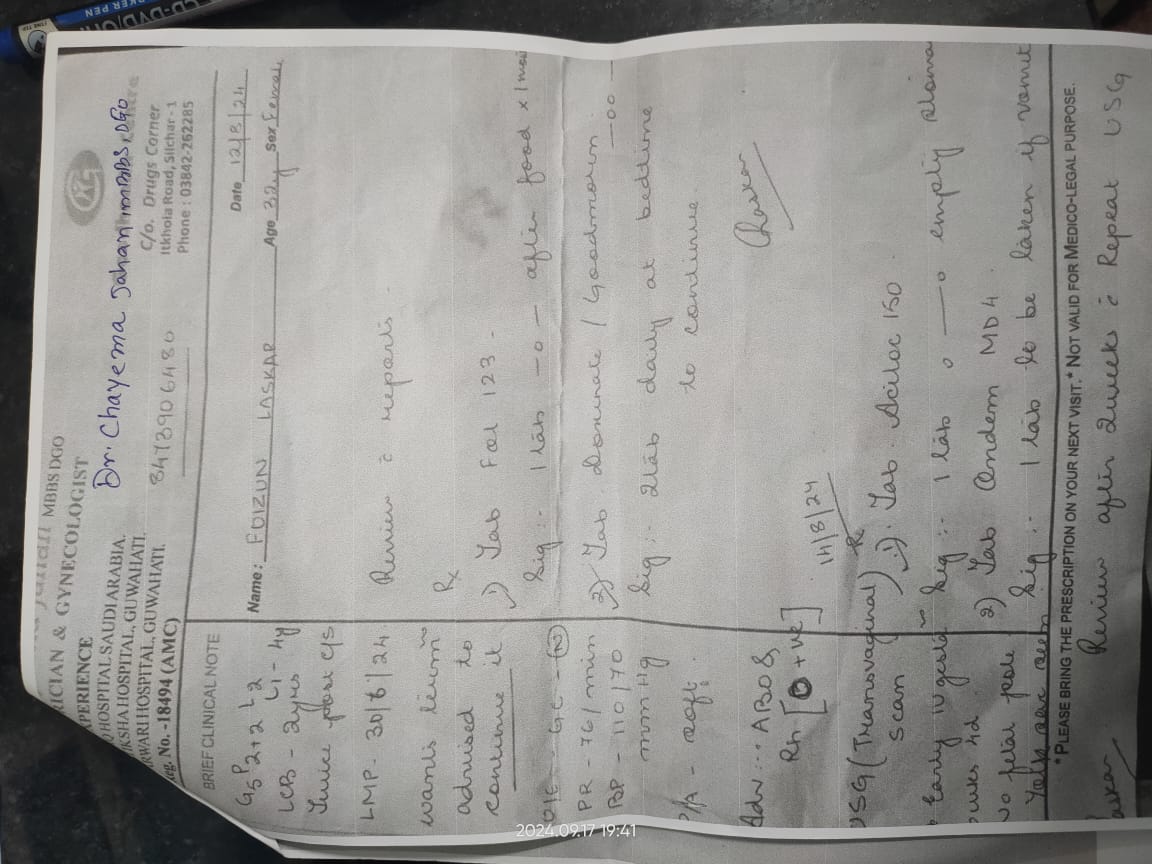 MBBS DGO
RICIAN & GYNECOLOGIST
PERIENCE
HOSPITAL SAUDI ARABIA,
KSHA HOSPITAL, GUWAHATI,
RWARI HOSPITAL, GUWAHATI.
eg. No. -18494 (AMC)
Dr. Chayema Jahan MBBS, DGO
8473906480
C/o. Drugs Corner
Itkhola Road, Silchar - 1
Phone : 03842-262285
BRIEF CLINICAL NOTE
Date 12/8/24
Name: FOIZUN LASKAR Age 32y Sex Female
G5 P2+2 L2
LCB - 2yrs L1 - 4y
c/s
LMP - 30/6/24
wants
advised to
continue it
GC - N
PR - 76/min
BP - 110/70
mmHg
P/A - soft.
Adv... ABO &
Rh [O +ve]
USG (Transvaginal)
Scan
Early
wks 4d
no fetal pole
Yolk sac seen
Review c̄ reports -
Rx
1) Tab Fol 123 -
Sig :- 1 tab - o - after food x 1
2) Tab. / Goodmorn
- oo -
Sig :- 2 tab daily at bedtime
to continue
14/8/24
Rx
1) Tab. Aciloc 150
Sig :- 1 tab o — o empty
2) Tab Ondem MD4
Sig :- 1 tab to be taken if vomit
*PLEASE BRING THE PRESCRIPTION ON YOUR NEXT VISIT.* NOT VALID FOR MEDICO-LEGAL PURPOSE.
Review after 2 weeks c̄ Repeat USG
2024.09.17 19:41